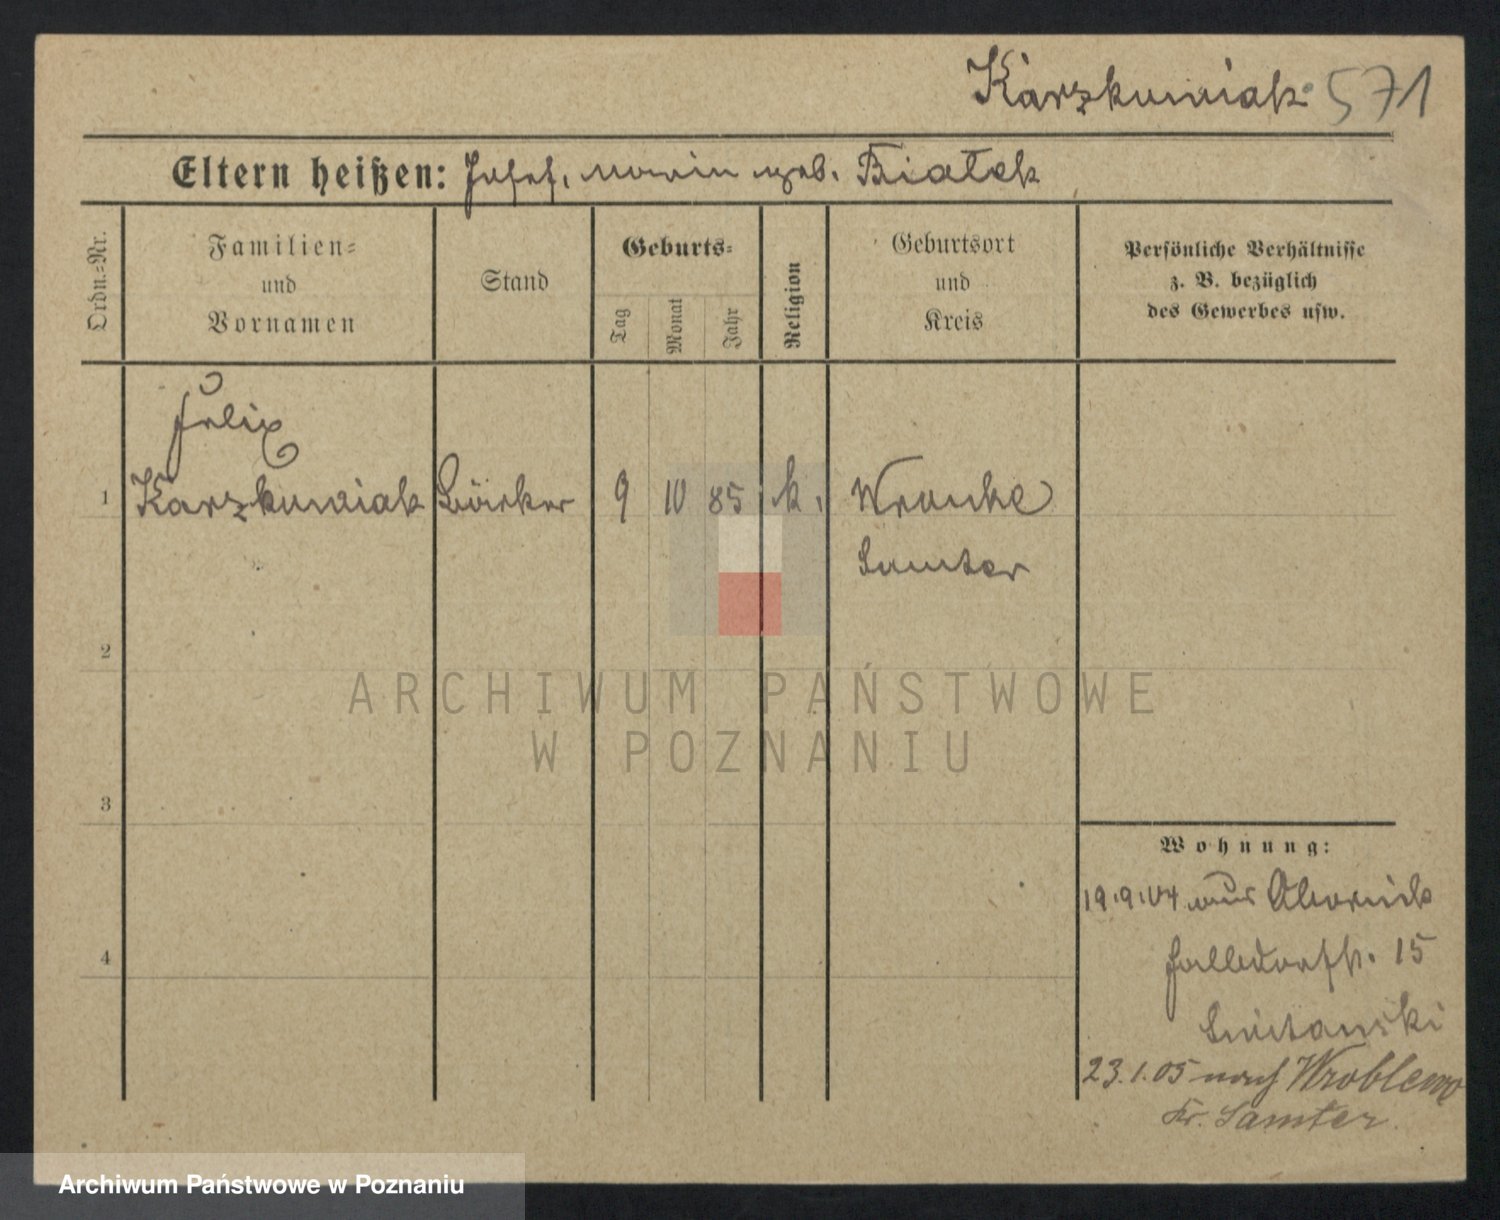 Karzkuwiak 571
Eltern heißen: Josef, Maria geb. Białek
Ordn.=Nr.
Familien=
und
Vornamen
Stand
Geburts=
Tag
Monat
Jahr
Religion
Geburtsort
und
Kreis
Persönliche Verhältnisse
z. B. bezüglich
des Gewerbes usw.
Felix
1 Karzkuwiak Bäcker 9 10 85 k. Wronke
Samter
2
3
4
Wohnung:
19.9.04 aus Obornick
15
23.1.05 nach Wroblewo
Kr. Samter.
ARCHIWUM PAŃSTWOWE
W POZNANIU
Archiwum Państwowe w Poznaniu